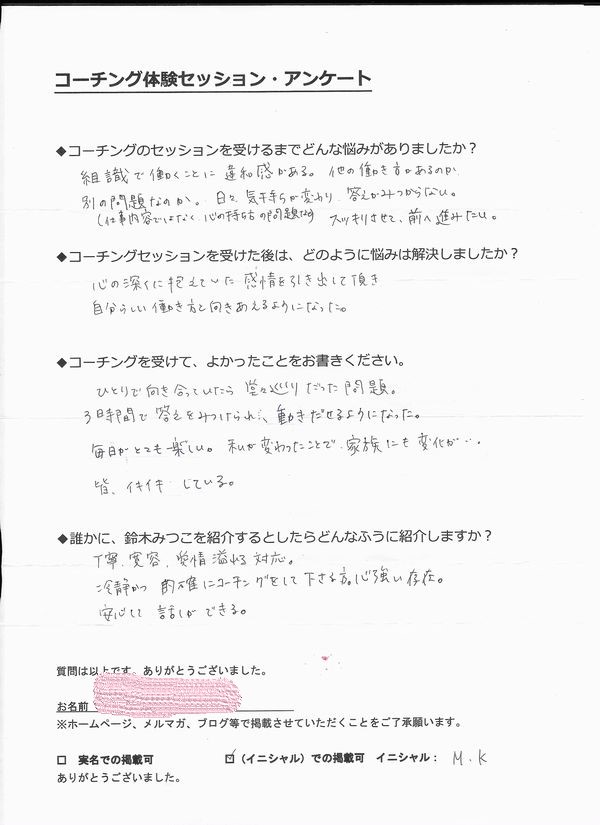 コーチング体験セッション・アンケート
◆コーチングのセッションを受けるまでどんな悩みがありましたか？
組識で働くことに違和感がある。他の働き方があるのか
別の問題なのか。日々気持ちが変わり、答えがみつからない。
(仕事内容ではなく、心の持ち方の問題なのか) スッキリさせて、前へ進みたい。
◆コーチングセッションを受けた後は、どのように悩みは解決しましたか？
心の深くに抱えていた感情を引き出して頂き
自分らしい働き方と向きあえるようになった。
◆コーチングを受けて、よかったことをお書きください。
ひとりで向き合っていたら堂々巡りだった問題。
3時間で答えをみつけられ、動きだせるようになった。
毎日がとても楽しい。私が変わったことで、家族にも変化が…。
皆、イキイキしている。
◆誰かに、鈴木みつこを紹介するとしたらどんなふうに紹介しますか？
丁寧、寛容、愛情溢れる対応。
冷静かつ的確にコーチングをして下さる方。心強い存在。
安心して話しができる。
質問は以上です。ありがとうございました。
お名前
※ホームページ、メルマガ、ブログ等で掲載させていただくことをご了承願います。
□ 実名での掲載可 ☑（イニシャル）での掲載可 イニシャル： M.K
ありがとうございました。